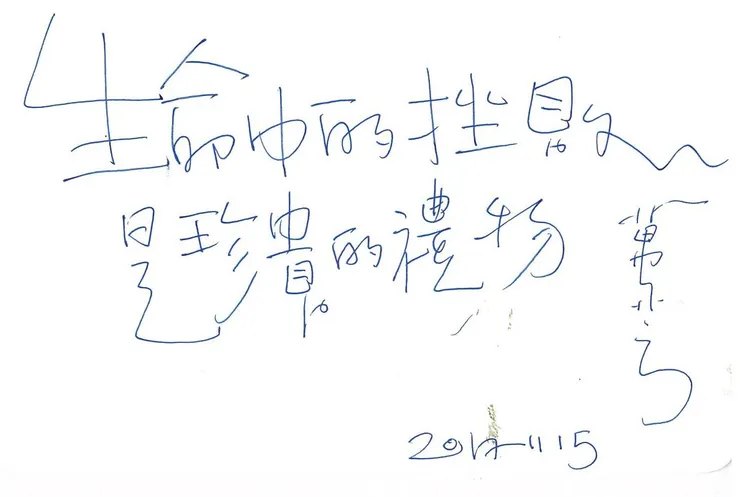 生命中的挫敗
是珍貴的禮物
2017 11 15